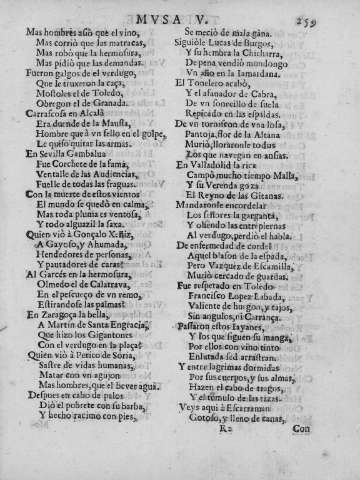 MVSA V.
259
Mas hombres asió que el vino,
Mas corrió que las matracas,
Mas robò que la hermosura,
Mas pidiò que las demandas.
Fueron galgos de el verdugo,
Que le truxeron la caça,
Mostoles el de Toledo,
Obregon el de Granada.
Carrascosa en Alcalà
Era duende de la
Hombre que à vn sello en el golpe,
Le quiso quitar las armas.
En Sevilla Gambalua
Fue Corchete de la fama,
Ventalle de las Audiencias,
Fuelle de todas las fraguas.
Con la muerte de estos vientos
El mundo se quedò en calma,
Mas toda pluma es ventosa,
Y todo alguazil la saxa.
Quien viò à Gonçalo Xeñiz,
A Gayoso, y Ahumada,
Hendedores de personas,
Y pautadores de caras!
Al Garcès en la hermosura,
Olmedo el de Calatrava,
En el pescueço de vn remo,
Estirandose las palmas!
En Zaragoça la bella,
A Martin de Santa Engracia,
Que hizo los Gigantones
Con el verdugo en la plaça!
Quien viò à Perico de Soria,
Sastre de vidas humanas,
Matar con vn agujon
Mas hombres, que el bever agua.
Despues en cabo de palos
Diò el pobrete con su barba,
Y hecho racimo con pies,
Se meciò de mala gana.
Siguióle Lucas de Burgos,
Y su hembra la Chicharra,
De pena vendiò mondongo
Vn año en la Jamardana.
El Tonelero acabò,
Y el afanador de Cabra,
De vn soncillo de suela
Repicado en las espaldas.
De vn torniscon de vna losa,
Pantoja, flor de la Altana
Murió, lloraronle todos
Los que navegan en ansias.
En Valladolid la rica
Campò mucho tiempo Malla,
Y su Verenda goza
El Reyno de las Gitanas.
Mandaronle encordelar
Los señores la garganta,
Y oliendo las entrepiernas
Al verdugo, perdiò el habla.
De enfermedad de cordel
Aquel blason de la espada,
Pero Vazquez de Escamilla,
Murió cercado de guardas.
Fue respetado en Toledo
Francisco Lopez Labada,
Valiente de hurgon, y tajos,
Sin angulos, ni Carrança.
Passaron estos Iayanes,
Y los que siguen su manga,
Por ellos con vino tinto
Enlutada sed arrastran.
Y entre lagrimas dormidas
Por sus cuerpos, y sus almas,
Hazen el cabo de tragos,
Y el tumulo de las tazas.
Veys aqui à Escarraman
Gotoso, y lleno de canas,
R2 Con